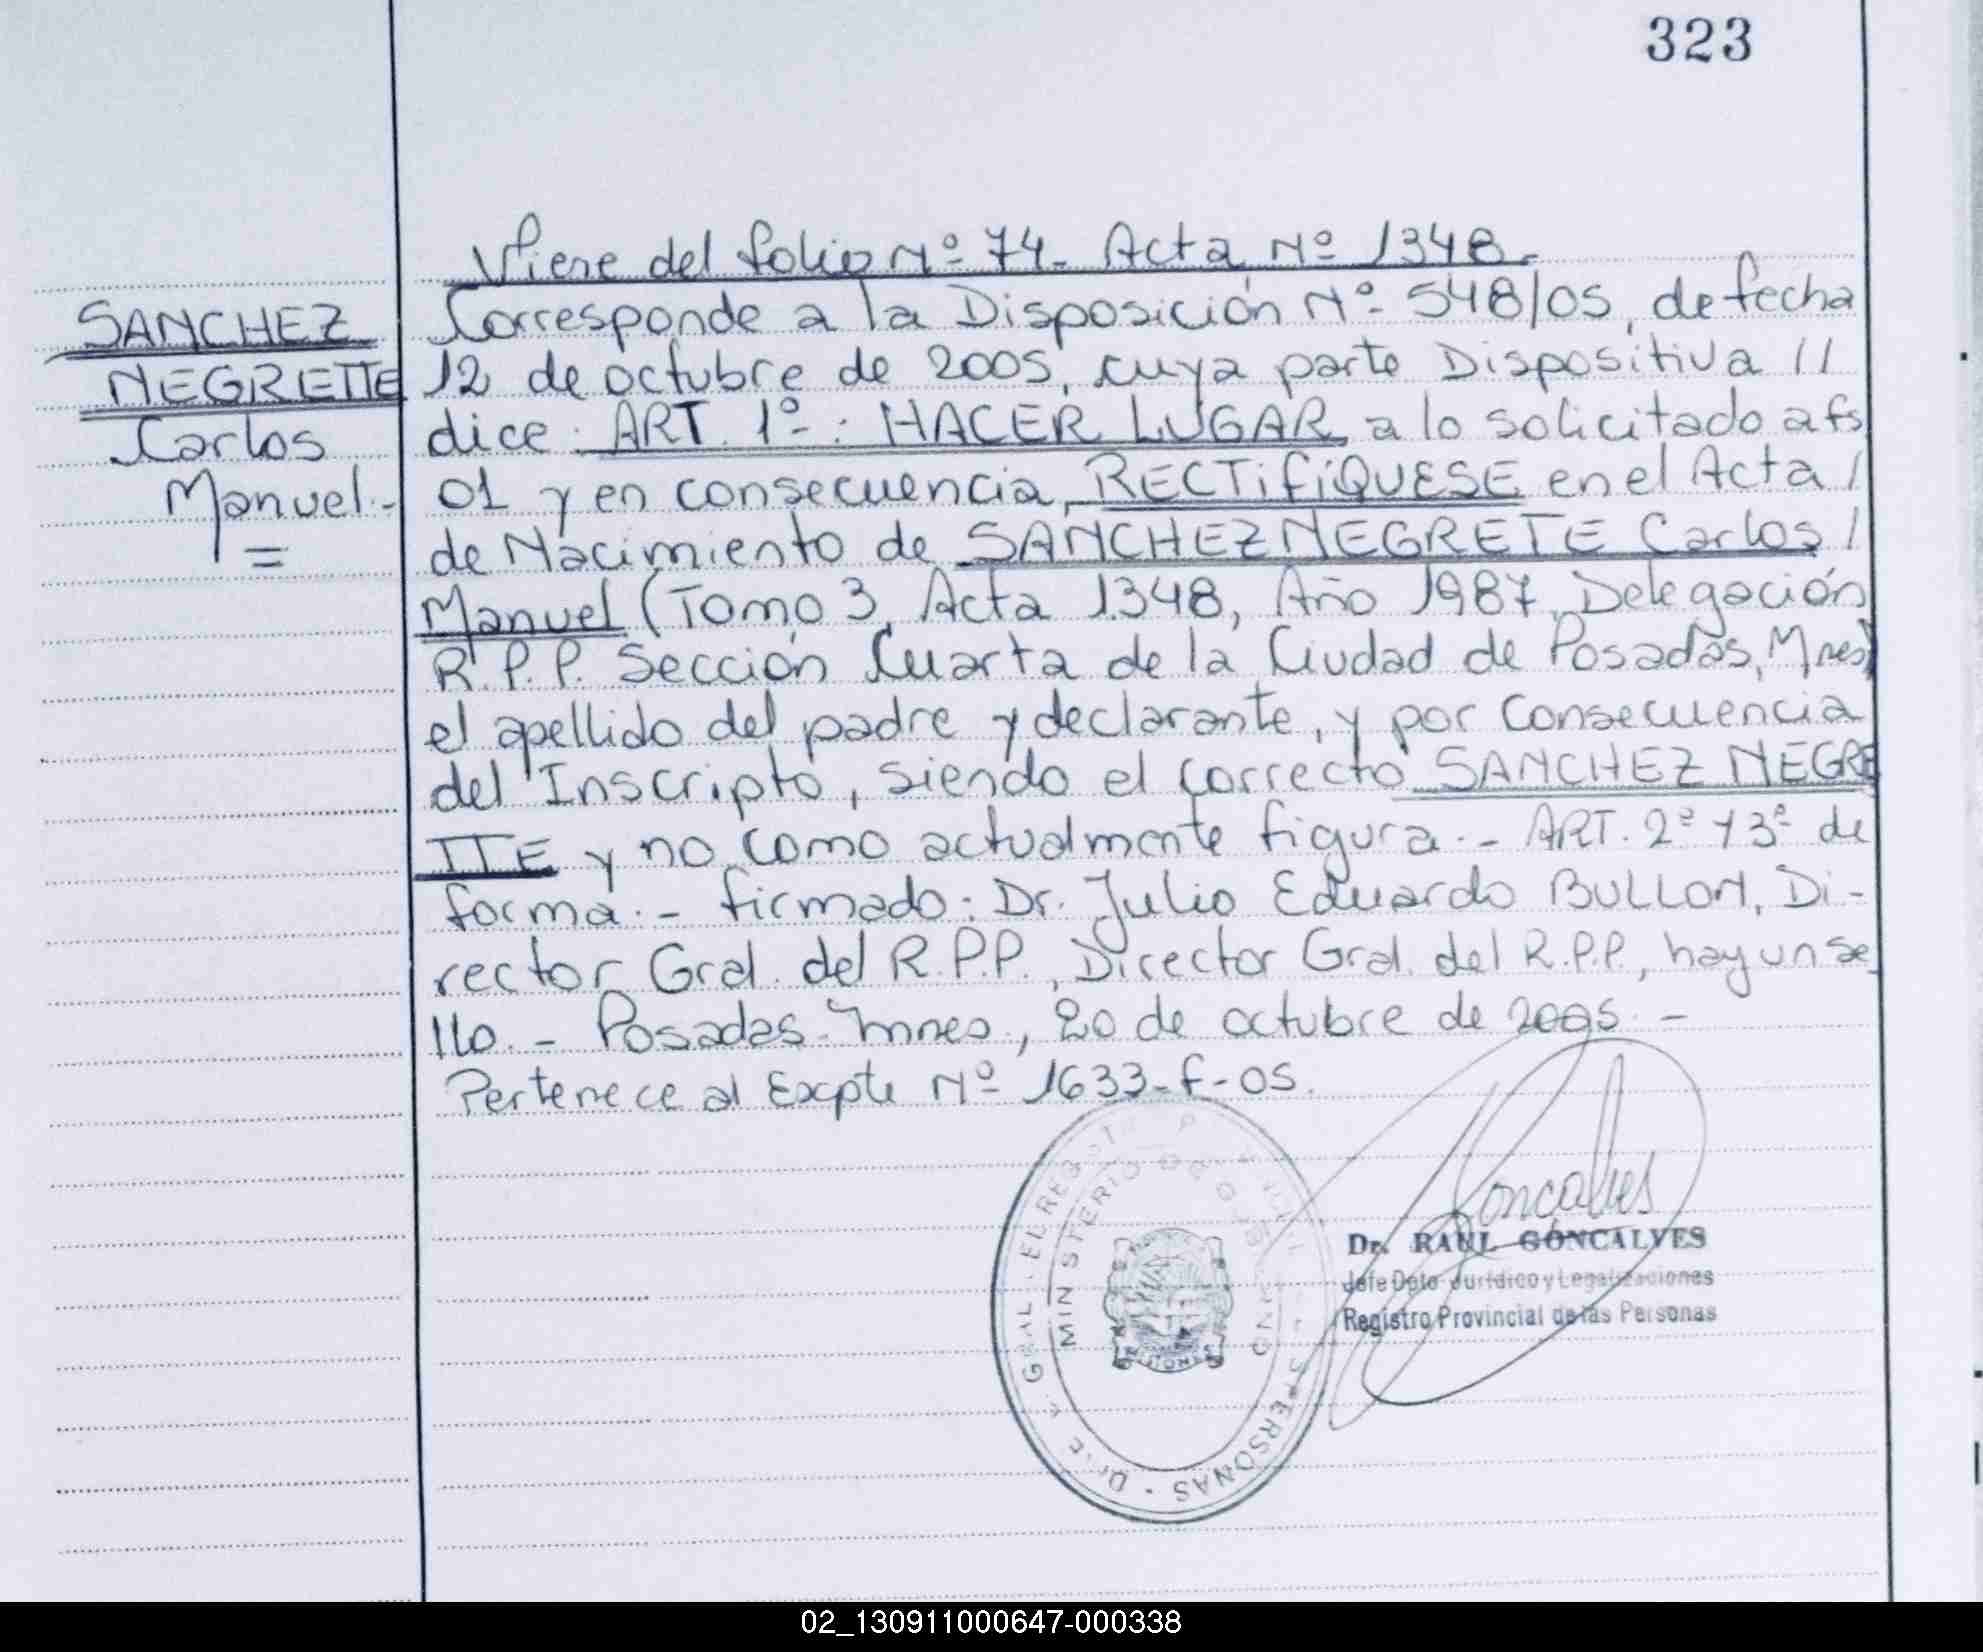 323
SANCHEZ
NEGRETTE
Carlos
Manuel.-
=
Viene del folio Nº 74. Acta Nº 1348.
Corresponde a la Disposición Nº 548/05, de fecha
12 de octubre de 2005, cuya parte Dispositiva //
dice: ART. 1º: HACER LUGAR a lo solicitado a fs
01 y en consecuencia, RECTIFÍQUESE en el Acta /
de Nacimiento de SANCHEZ NEGRETE Carlos /
Manuel (Tomo 3, Acta 1348, Año 1987, Delegación
R.P.P. Sección Cuarta de la Ciudad de Posadas, Mnes)
el apellido del padre y declarante, y por consecuencia
del Inscripto, siendo el correcto SANCHEZ NEGRE
TTE y no como actualmente figura.- ART. 2º y 3º de
forma.- firmado: Dr. Julio Eduardo BULLON, Di-
rector Gral. del R.P.P., Director Gral. del R.P.P., hay un se
llo.- Posadas-Mnes, 20 de octubre de 2005.-
Pertenece al Expte Nº 1633-f-05.
MINISTERIO DE GOB
GRAL. EL REGIST
PERSONAS
Goncalves
Dr. RAUL GONCALVES
Jefe Dpto Jurídico y Legalizaciones
Registro Provincial de las Personas
02_130911000647-000338